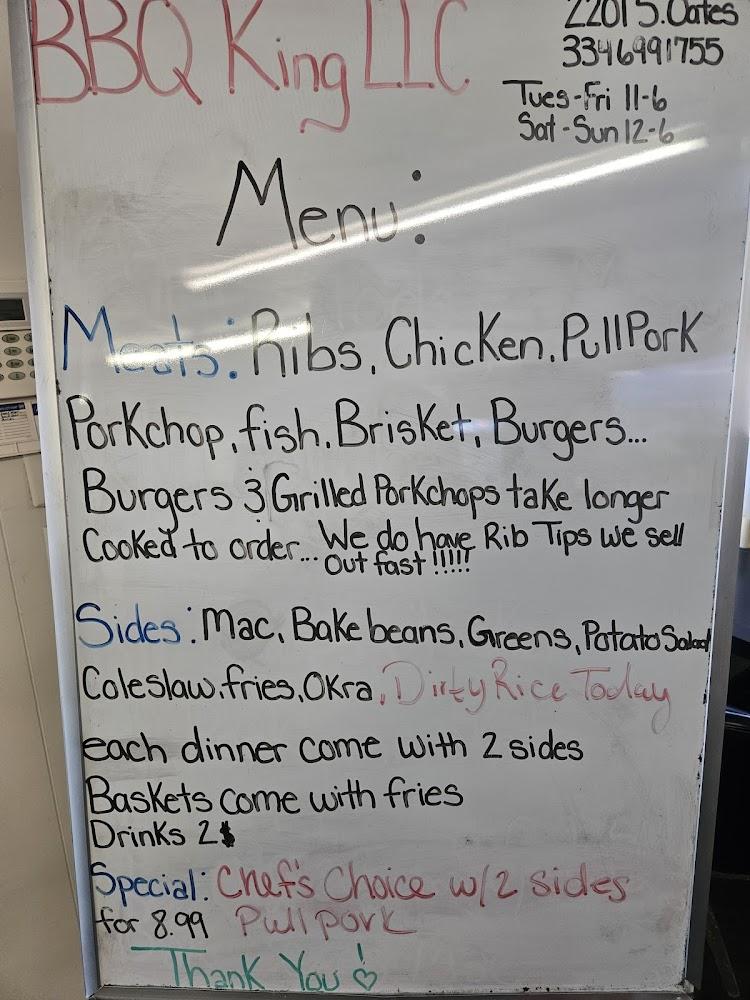 BBQ King LLC
2201 S. Oates
3346991755
Tues-Fri 11-6
Sat-Sun 12-6
Menu:
Meats: Ribs, Chicken, PullPork
Porkchop, fish, Brisket, Burgers...
Burgers & Grilled Porkchops take longer
Cooked to order... We do have Rib Tips we sell
out fast!!!!!
Sides: Mac, Bake beans, Greens, Potato Salad
Coleslaw, fries, Okra, Dirty Rice Today
each dinner come with 2 sides
Baskets come with fries
Drinks 2$
Special: Chef's Choice w/2 sides
for 8.99 Pull pork
Thank You!